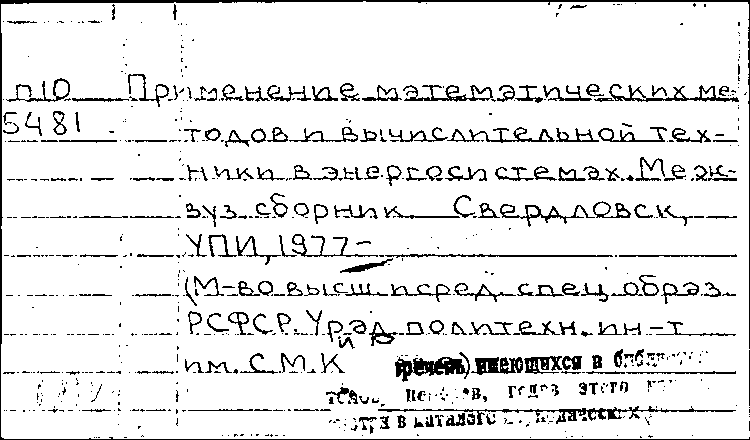 п10 Применение математических ме-
5481 тодов и вычислительной тех-
ники в энергосистемах. Меж-
вуз. сборник. Свердловск,
УПИ, 1977-
(М-во высш. и сред. спец. образ.
РСФСР. Урал политехн. ин-т
им. С.М.К
имеющихся в
годов этого
в каталоге